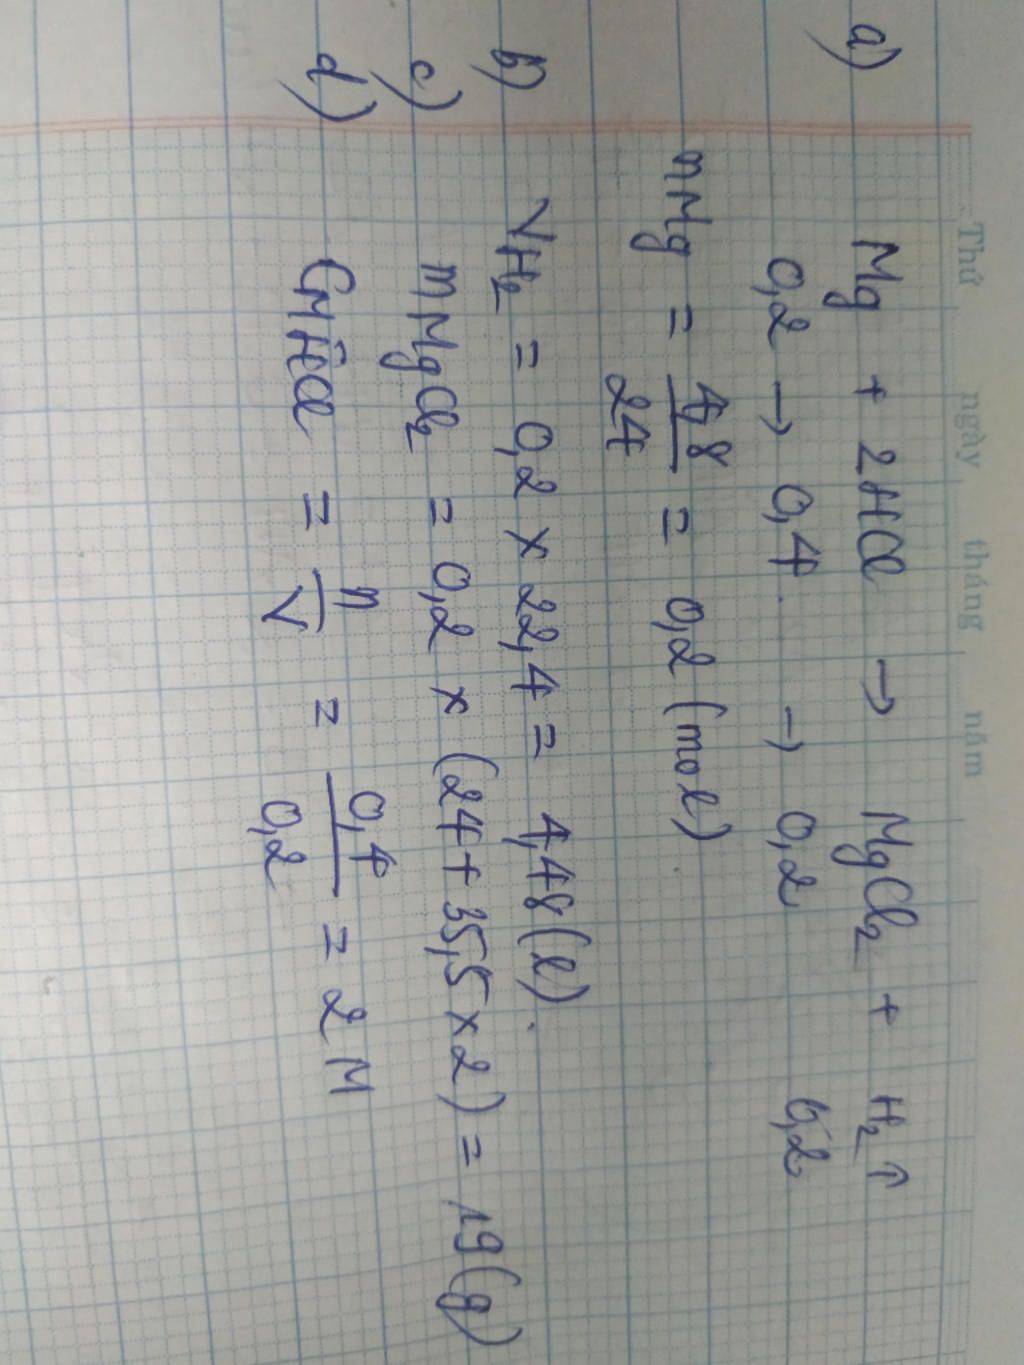 Thứ ngày tháng năm
a) Mg + 2HCl → MgCl₂ + H₂↑
0,2 → 0,4 → 0,2 0,2
nMg = 4,8/24 = 0,2 (mol)
b) VH₂ = 0,2 x 22,4 = 4,48 (l).
c) mMgCl₂ = 0,2 x (24 + 35,5 x 2) = 19 (g)
d) CMHCl = n/V = 0,4/0,2 = 2 M